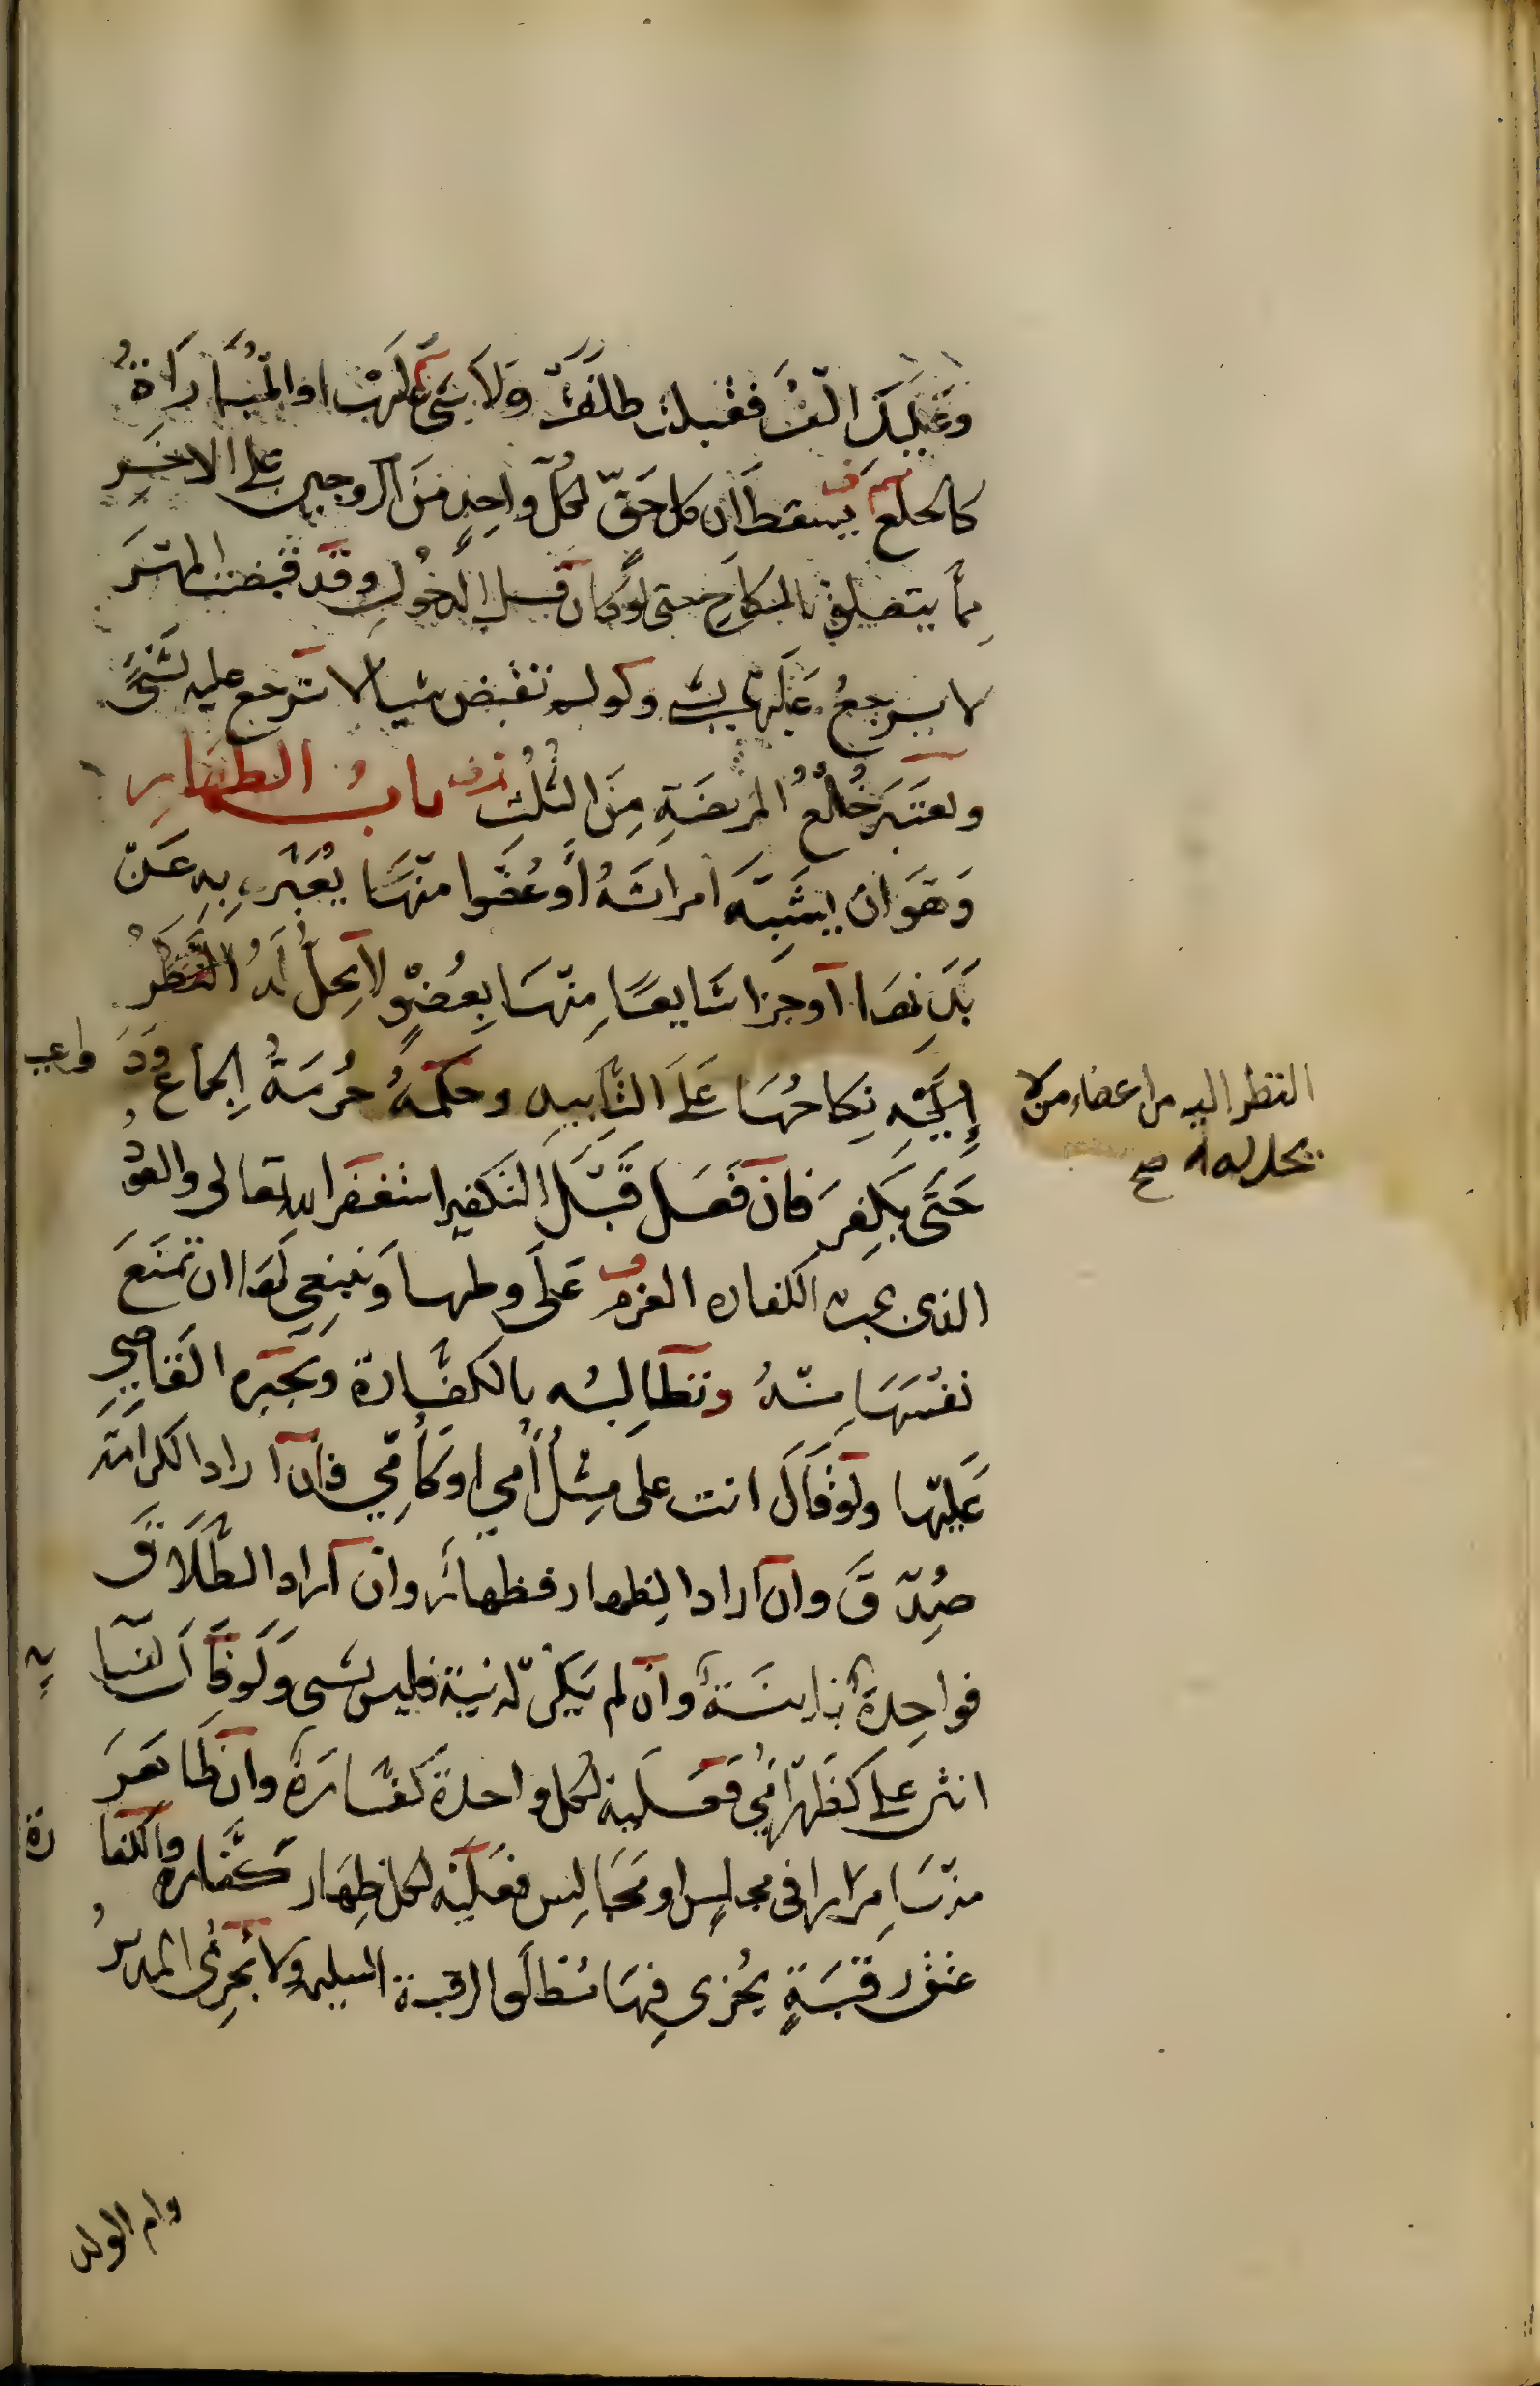 وَعَلَيكِ الْفٌ فقبلت طلقَتْ وَلَا شَيْءَ عَلَيْهَا والمُبَارَاةُ
كالخلع يسقطان كل حَقّ لكُلّ واحِدٍ مِنَ الزوجين على الاخَرِ
مِمّا يتعلق بالنكاحِ حتى لَوْ كان قبل الدخُولِ وقد قبضت المهَر
لا يرجعُ عَلَيْهَا بشي ولو لم تقبض شيا لا ترجع عليه بشَيْءٍ
ويعتَبَرُ خُلْعُ المريضَةِ مِنَ الثُلُثِ بابُ الظهَارِ
وَهُوَ ان يُشَبِّهَ امراتَهُ أَوْ عُضْوا منْهَا يُعَبَّرُ بِهِ عَنْ
بَدَنِهَا اوْ جزا شايعًا مِنْهَا بِعُضْوٍ لا يَحِلُّ لَهُ النَّظَرُ
إِلَيْهِ نِكَاحُهَا عَلَى التَّابِيدِ وحكمهُ حُرمَةُ الجماعُ وَدَواعيه
النظر اليه من اعضاء من لا
يحل له صح
حَتَّى يكفِرَ فان فَعَلَ قَبْلَ التكفير استغفر الله تعالى والعَوْدُ
الذى يجب الكفاره العزم عَلَى وطيها وَينبغِي لَهَا ان تمنَعَ
نفْسَهَا مِنْهُ وتطالِبُه بالكفَّارة ويجبره القاضِي
عَلَيْهَا ولَوْ قَالَ انت على مِثْلُ أُمي او كَأُمّي فان اراد الكرامَة
صُدِّقَ وان اراد الظهار فظهار وان اراد الطَّلَاقَ
فواحِدَةٌ باينَةٌ وان لم يَكُنْ لَهُ نية فليس بشي وَلَوْ قَالَ لنسَايه
انتن على كَظَهْرِ أُمِّي فَعَلَيْه لكل واحدة كفّارَةٌ وان ظَاهَرَ
مِنْهَا مِرَارا فى مجلِسٍ او مَجَالِس فعَلَيْه لكل ظِهَار كفّاره والكفارة
عتق رقبَةٍ يُجزى فِيهَا مُطلَق الرقبة السليمه ولا يُجزِئُ المدبّرُ
وام الولد